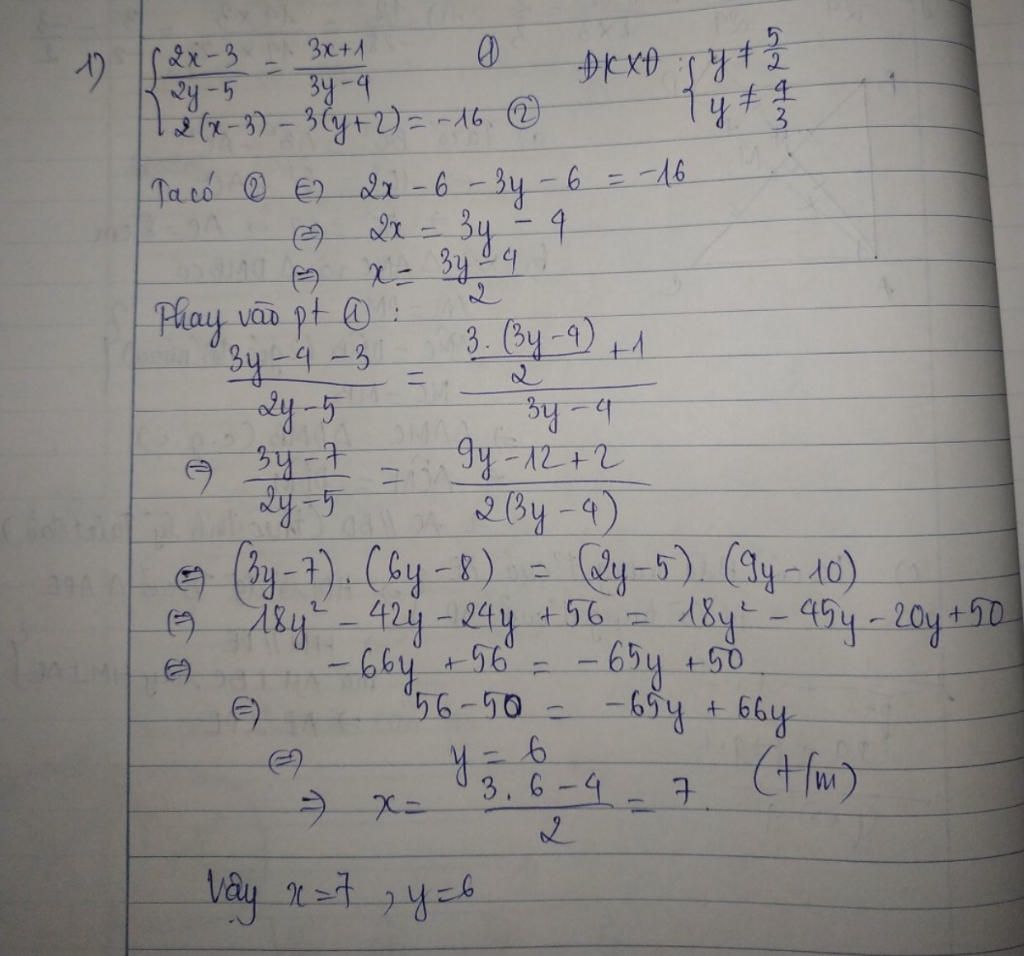 1) { (2x-3)/(2y-5) = (3x+1)/(3y-4) ① ĐKXĐ: { y ≠ 5/2
2(x-3) - 3(y+2) = -16 ② y ≠ 4/3
Ta có ② ⇔ 2x - 6 - 3y - 6 = -16
⇔ 2x = 3y - 4
⇔ x = (3y-4)/2
Thay vào pt ① :
(3y-4-3)/(2y-5) = (3.(3y-4)/2 + 1)/(3y-4)
⇔ (3y-7)/(2y-5) = (9y-12+2)/(2(3y-4))
⇔ (3y-7).(6y-8) = (2y-5).(9y-10)
⇔ 18y² - 42y - 24y + 56 = 18y² - 45y - 20y + 50
⇔ -66y + 56 = -65y + 50
⇔ 56-50 = -65y + 66y
⇔ y = 6
⇒ x = (3.6-4)/2 = 7. (t/m)
Vậy x=7, y=6